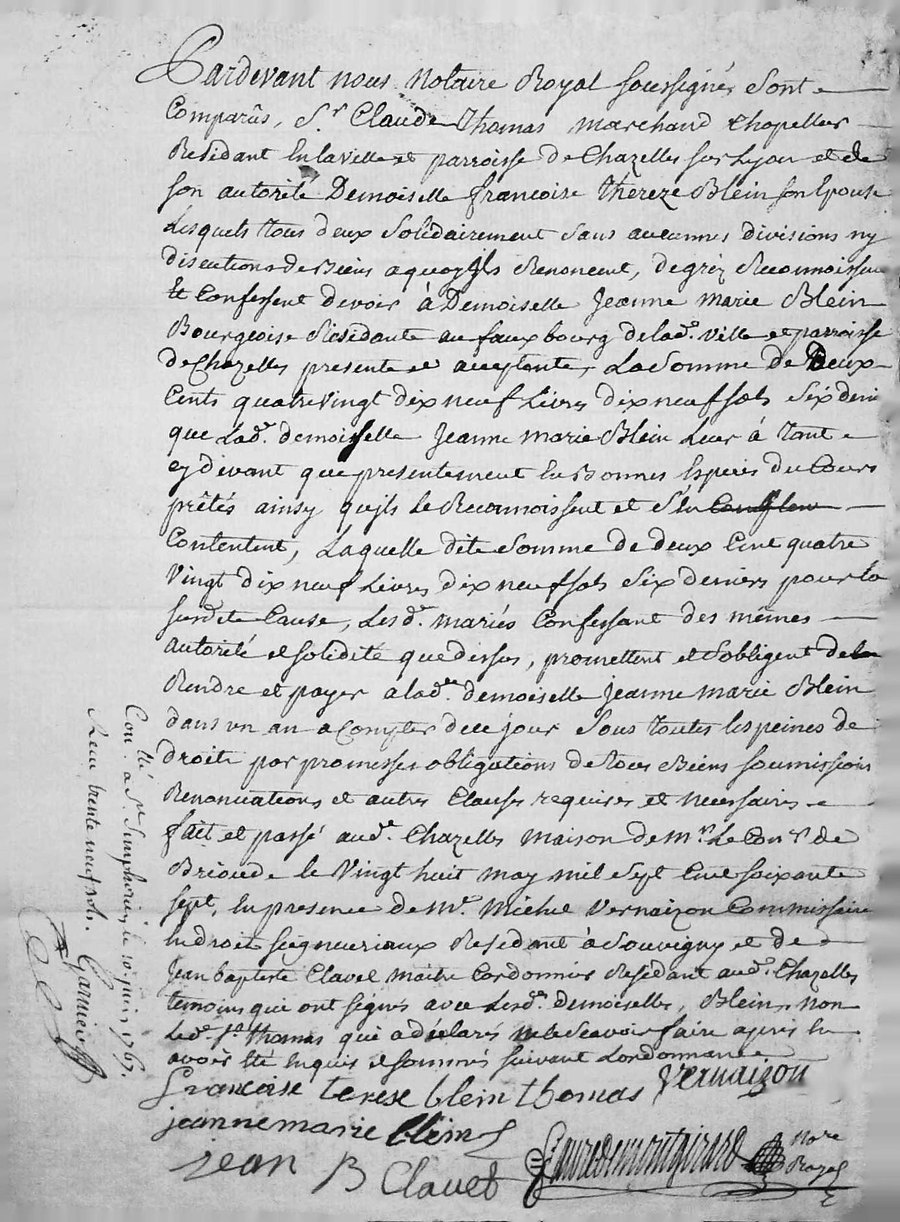 Pardevant nous Notaire Royal soussigné, Sont
Comparûs, Sr. Claude Thomas Marchand Chapellier
Residant en la ville et parroisse de Chazelles sur Lyon et de
son autorité Demoiselle francoise Thereze Blein son Epouse
Lesquels tous deux Solidairement Sans aucunnes divisions ny
discutions de Biens a quoy ils Renoncent, de gréz Reconnoissent
Et Confessent devoir à Demoiselle Jeanne Marie Blein
Bourgeoise Residante au fauxbourg de lade. ville et parroisse
de Chazelles presente et acceptante, La Somme de Deux
Cents quatrevingt dix neuf Livres dix neuf sols Six denie
que Lade. demoiselle Jeanne Marie Blein Leur à tant
cy devant que presentement en Bonnes Especes du Cours
prêtés ainsy qu'ils Le Reconnoissent et S'en
Contentent, Laquelle dite Somme de deux Cent quatre
Vingt dix neuf Livres dix neuf sols Six deniers pour la
susdite Cause, Lesd. mariés Confessant des mêmes
autorité et solidité que dessus, promettent et s'obligent de la
Rendre et payer a lade. demoiselle Jeanne Marie Blein
dans un an a Compter de ce jour Sous toutes les peines de
droite par promesses obligations de tous Biens soumissions
Renonciations et autres Clauses requises et necessaires
fait et passé aud. Chazelles maison de Mr. Le Con.r de
Brioude le Vingt huit may mil Sept Cent soixante
sept, En presence de Mr. Michel Vernaizon Commissaire
en droit seigneuriaux Residant à Souvigny et de
Jean baptiste Clavel maitre Cordonnier Residant aud. Chazelles
temoins qui ont signés avec Lesd. demoiselles, Blein, non
Led. Sr. thomas qui a declaré ne le scavoir faire apres en
avoir été enquis et sommés suivant Lordonnance
francoise terese blein thomas Vernaizon
jeanne marie blein
jean B Clavel
fauredemontgirard Nore
Royal
Con. llé a St. Simphorien le 10 juin 1767.
Recu trente neuf sols. Garnier